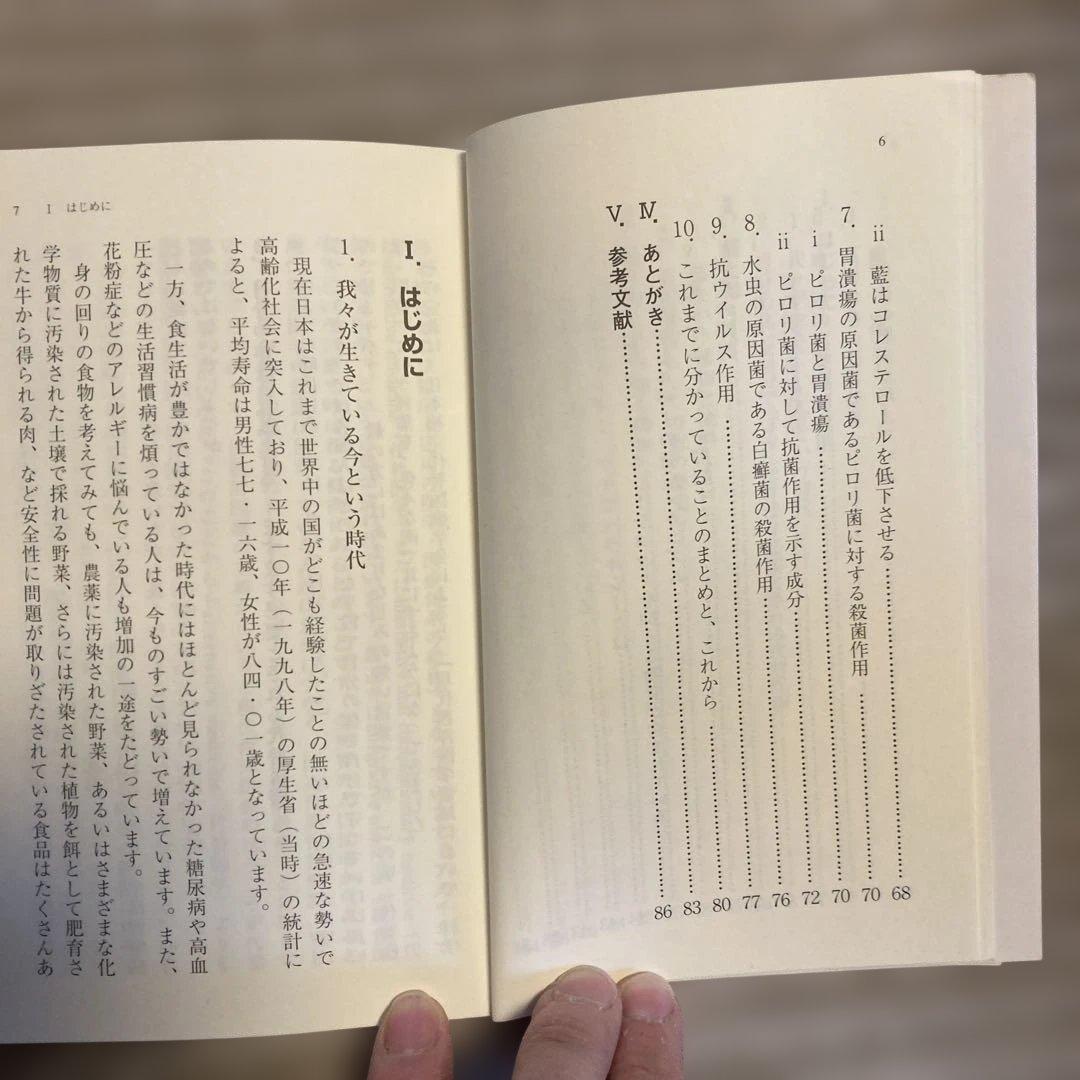 6
ii 藍はコレステロールを低下させる……………………68
7. 胃潰瘍の原因菌であるピロリ菌に対する殺菌作用……………………70
i ピロリ菌と胃潰瘍……………………70
ii ピロリ菌に対して抗菌作用を示す成分……………………72
8. 水虫の原因菌である白癬菌の殺菌作用……………………76
9. 抗ウイルス作用……………………77
10. これまでに分かっていることのまとめと、これから……………………80
Ⅳ. あとがき……………………83
Ⅴ. 参考文献……………………86
7 I はじめに
I. はじめに
1. 我々が生きている今という時代
現在日本はこれまで世界中の国がどこも経験したことの無いほどの急速な勢いで
高齢化社会に突入しており、平成一〇年（一九九八年）の厚生省（当時）の統計に
よると、平均寿命は男性七七・一六歳、女性が八四・〇一歳となっています。
一方、食生活が豊かではなかった時代にはほとんど見られなかった糖尿病や高血
圧などの生活習慣病を煩っている人は、今ものすごい勢いで増えています。また、
花粉症などのアレルギーに悩んでいる人も増加の一途をたどっています。
身の回りの食物を考えてみても、農薬に汚染された野菜、あるいはさまざまな化
学物質に汚染された土壌で採れる野菜、さらには汚染された植物を餌として肥育さ
れた牛から得られる肉、など安全性に問題が取りざたされている食品はたくさんあ